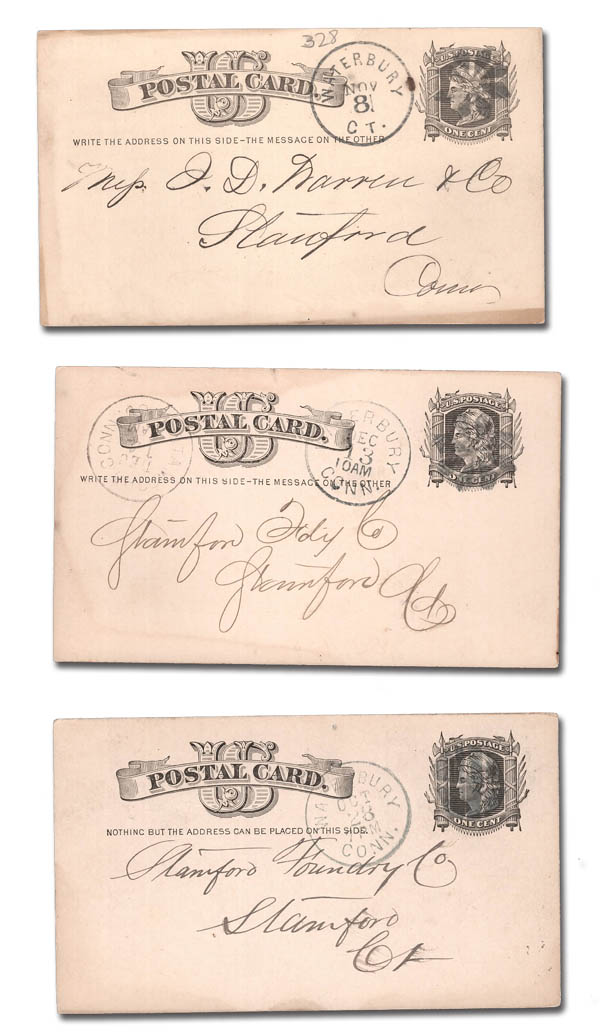 328
U S
POSTAL CARD.
WATERBURY
NOV
8
CT.
U.S. POSTAGE
ONE CENT
WRITE THE ADDRESS ON THIS SIDE–THE MESSAGE ON THE OTHER
Mess. J. D. Warren & Co
Stamford
Conn
U S
POSTAL CARD.
CONN.
WATERBURY
DEC
13
10AM
CONN.
U.S. POSTAGE
ONE CENT
WRITE THE ADDRESS ON THIS SIDE–THE MESSAGE ON THE OTHER
Stamford Fdy Co
Stamford Ct
U S
POSTAL CARD.
WATERBURY
CONN.
U.S. POSTAGE
ONE CENT
NOTHING BUT THE ADDRESS CAN BE PLACED ON THIS SIDE.
Stamford Foundry Co
Stamford
Ct